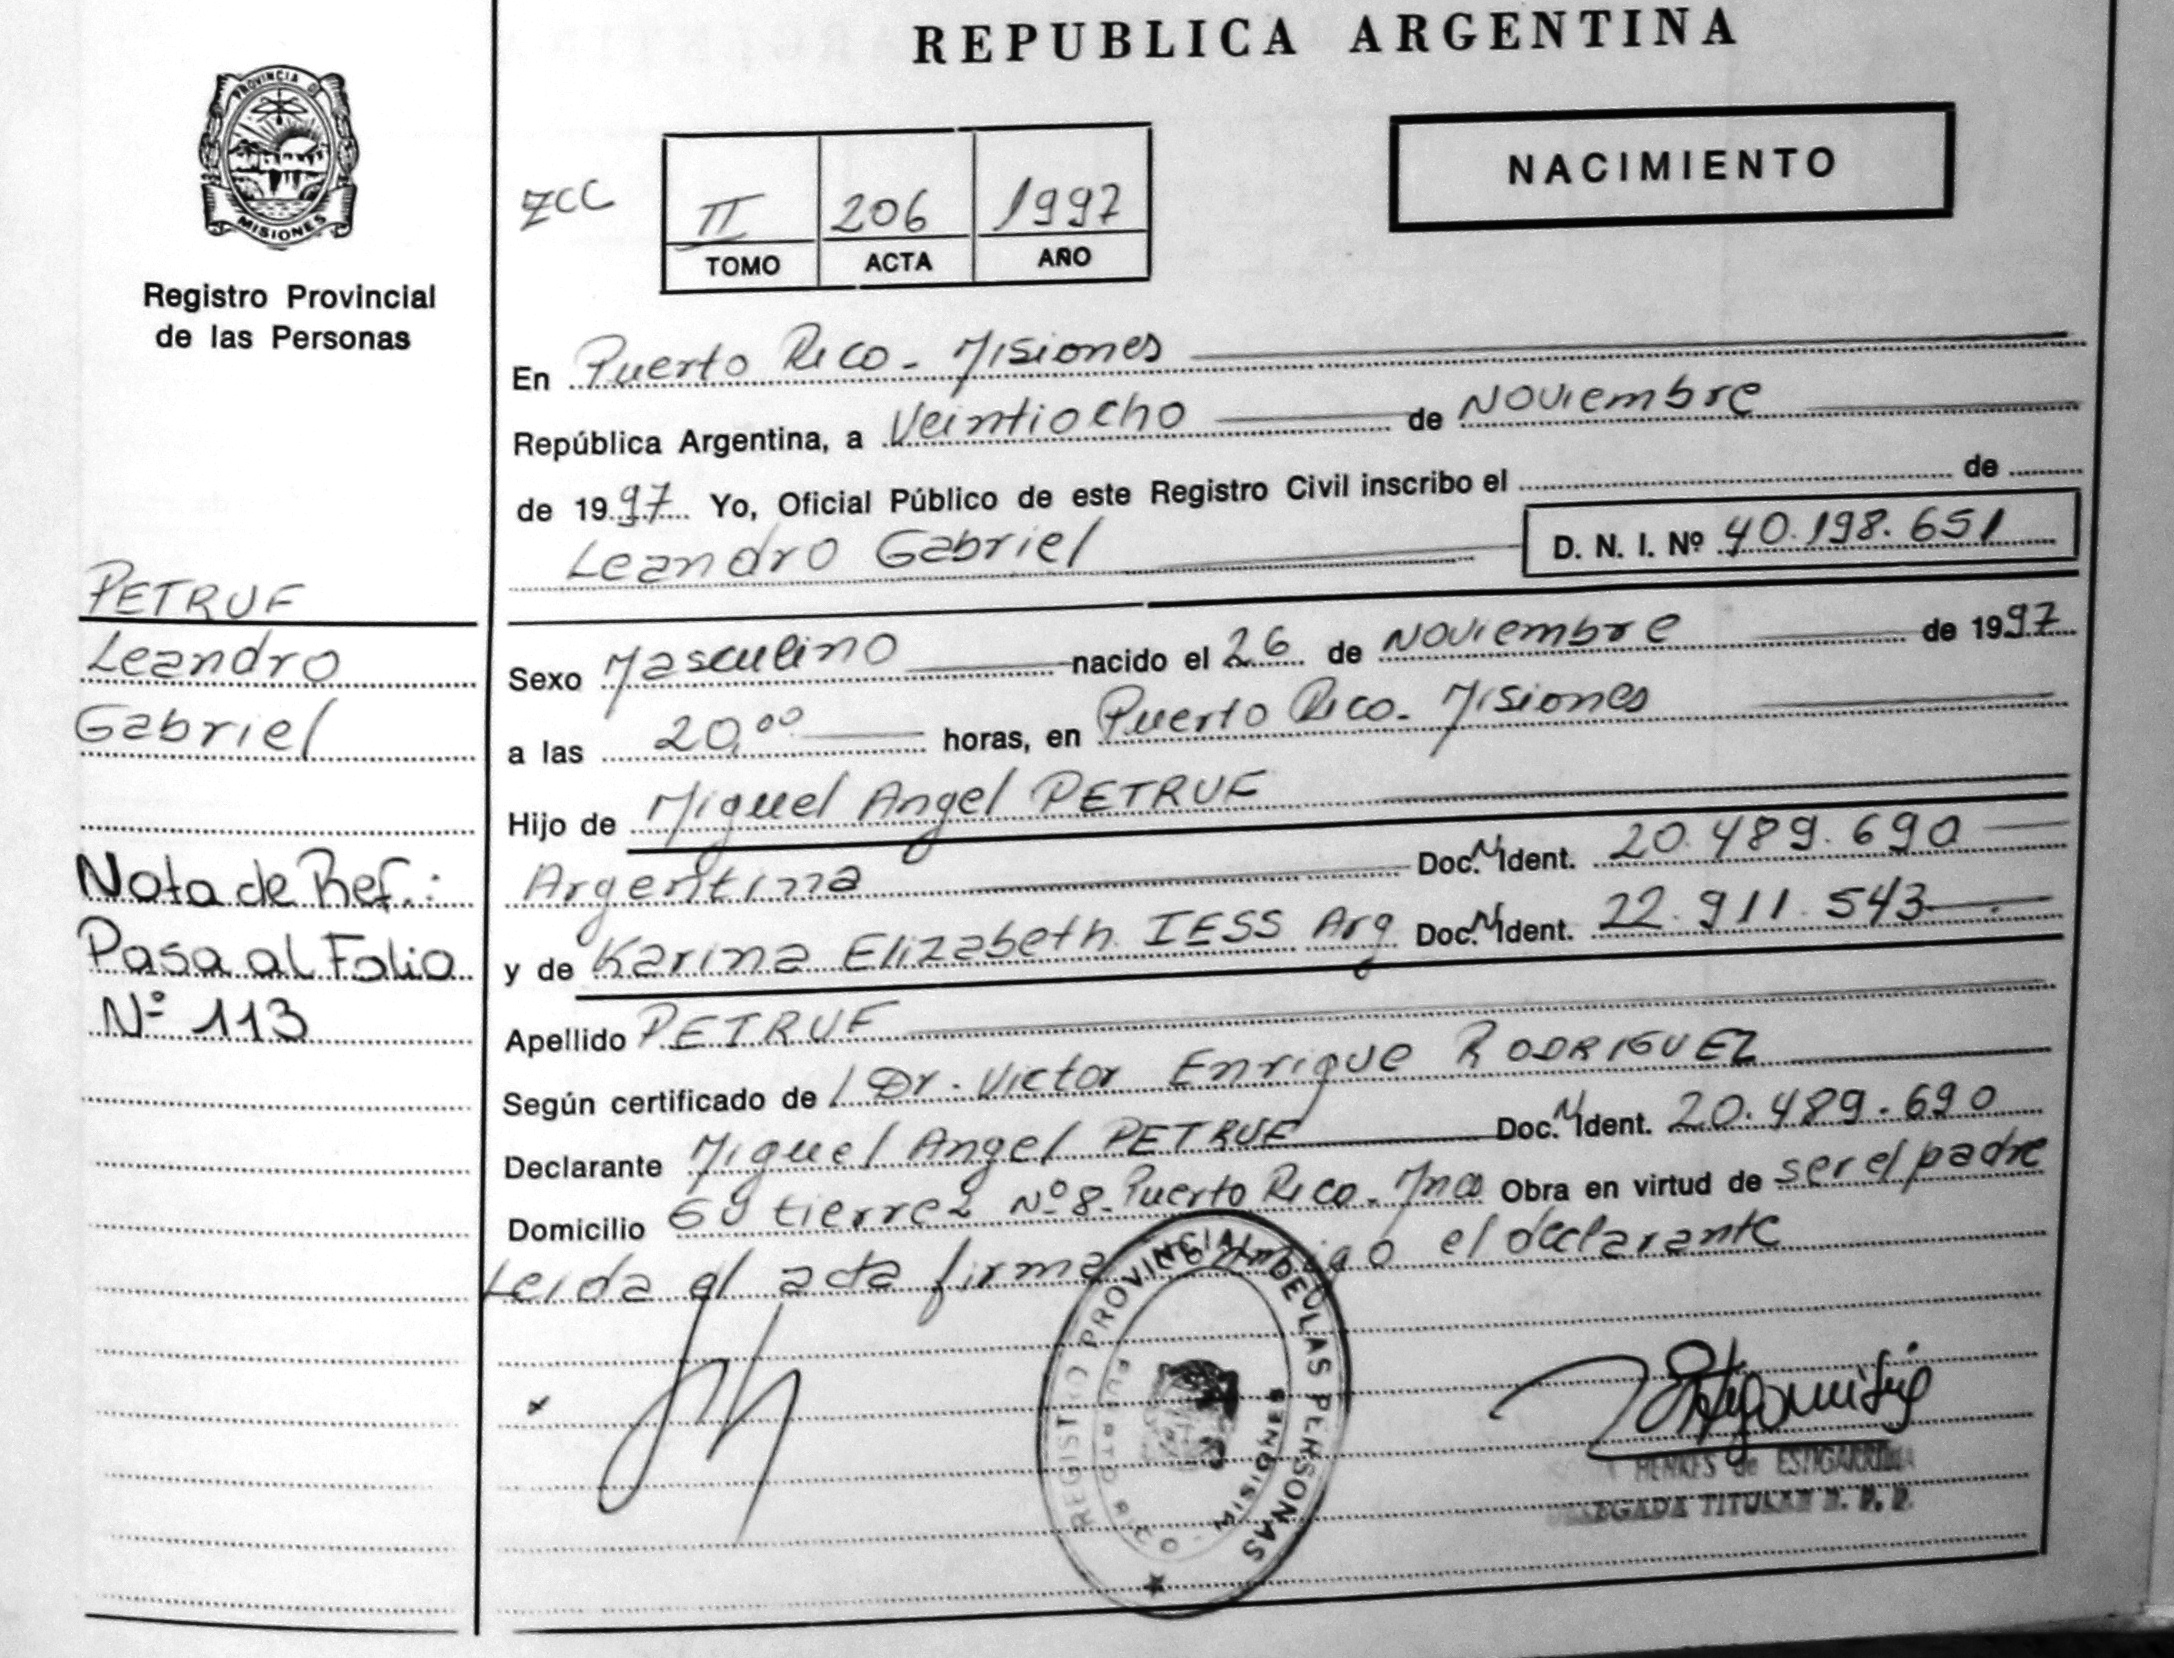 REPUBLICA ARGENTINA
PROVINCIA D
MISIONES
Registro Provincial
de las Personas
ZCC
II 206 1997
TOMO ACTA AÑO
NACIMIENTO
En Puerto Rico - Misiones
República Argentina, a Veintiocho de Noviembre
de 1997 Yo, Oficial Público de este Registro Civil inscribo el de
Leandro Gabriel D. N. I. Nº 40.198.651
Sexo Masculino nacido el 26 de Noviembre de 1997
a las 20,00 horas, en Puerto Rico - Misiones
Hijo de Miguel Angel PETRUF
Argentina Doc. N. Ident. 20.489.690
y de Karina Elizabeth IESS Arg Doc. N. Ident. 22.911.543
Apellido PETRUF
Según certificado de / Dr. Victor Enrique RODRIGUEZ
Declarante Miguel Angel PETRUF Doc. N. Ident. 20.489.690
Domicilio Gutierrez Nº 8 - Puerto Rico - Mnes Obra en virtud de ser el padre
Leida el acta firma conmigo el declarante
PETRUF
Leandro
Gabriel
Nota de Ref.:
Pasa al Folio
Nº 113
REGISTRO PROVINCIAL DE LAS PERSONAS
PUERTO RICO
MISIONES
HENKES de ESTIGARRIBIA
DELEGADA TITULAR R. P. P.